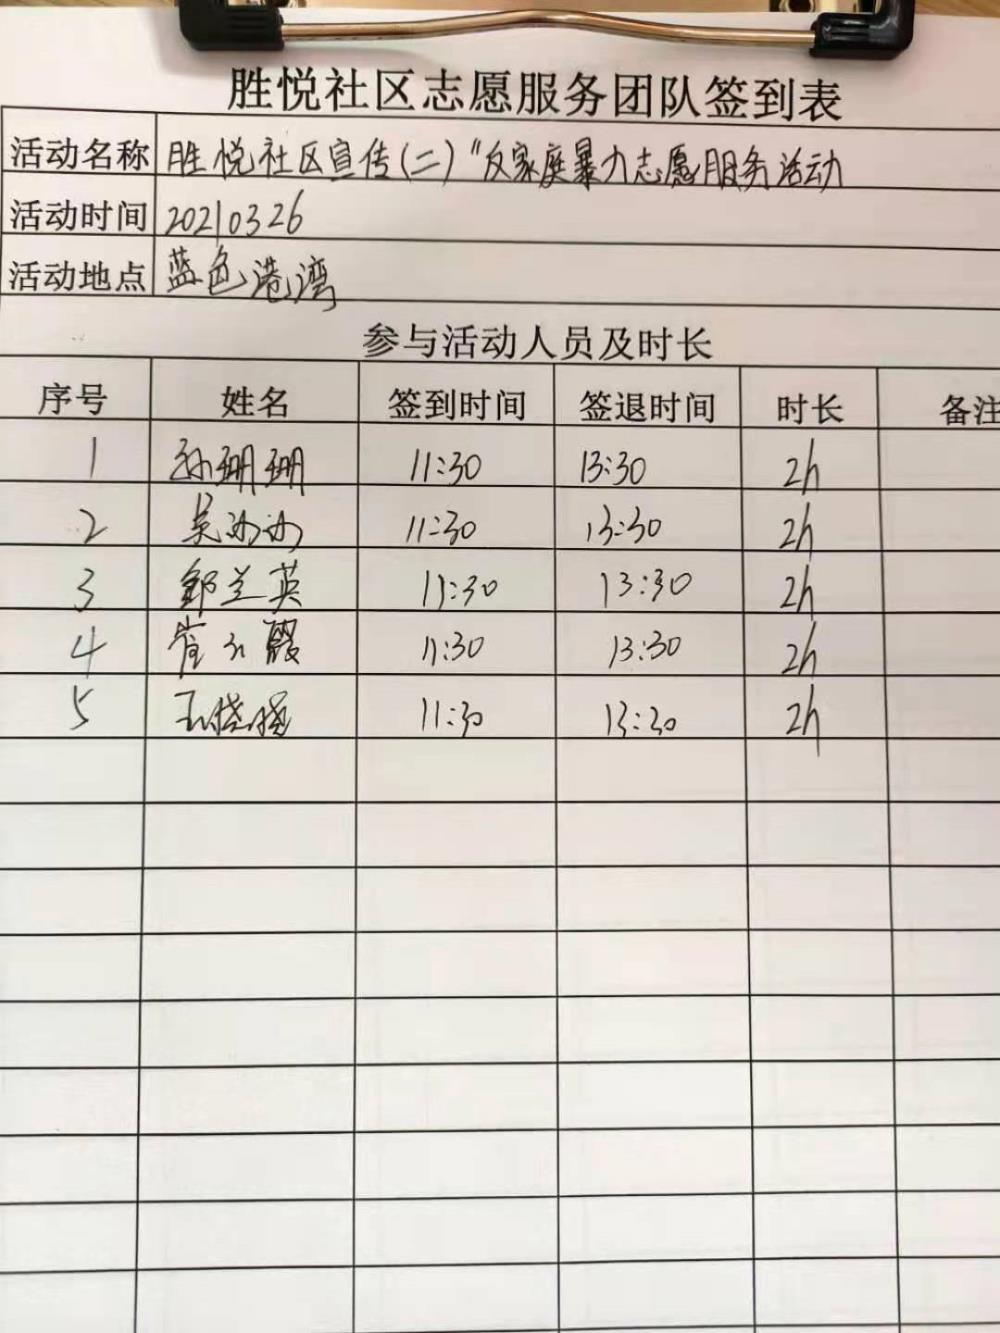 胜悦社区志愿服务团队签到表
活动名称 胜悦社区宣传(二)"反家庭暴力志愿服务活动
活动时间 20210326
活动地点 蓝色港湾
参与活动人员及时长
序号 姓名 签到时间 签退时间 时长 备注
1 孙珊珊 11:30 13:30 2h
2 吴 11:30 13:30 2h
3 邹兰英 11:30 13:30 2h
4 崔 霞 11:30 13:30 2h
5 王晓晓 11:30 13:30 2h